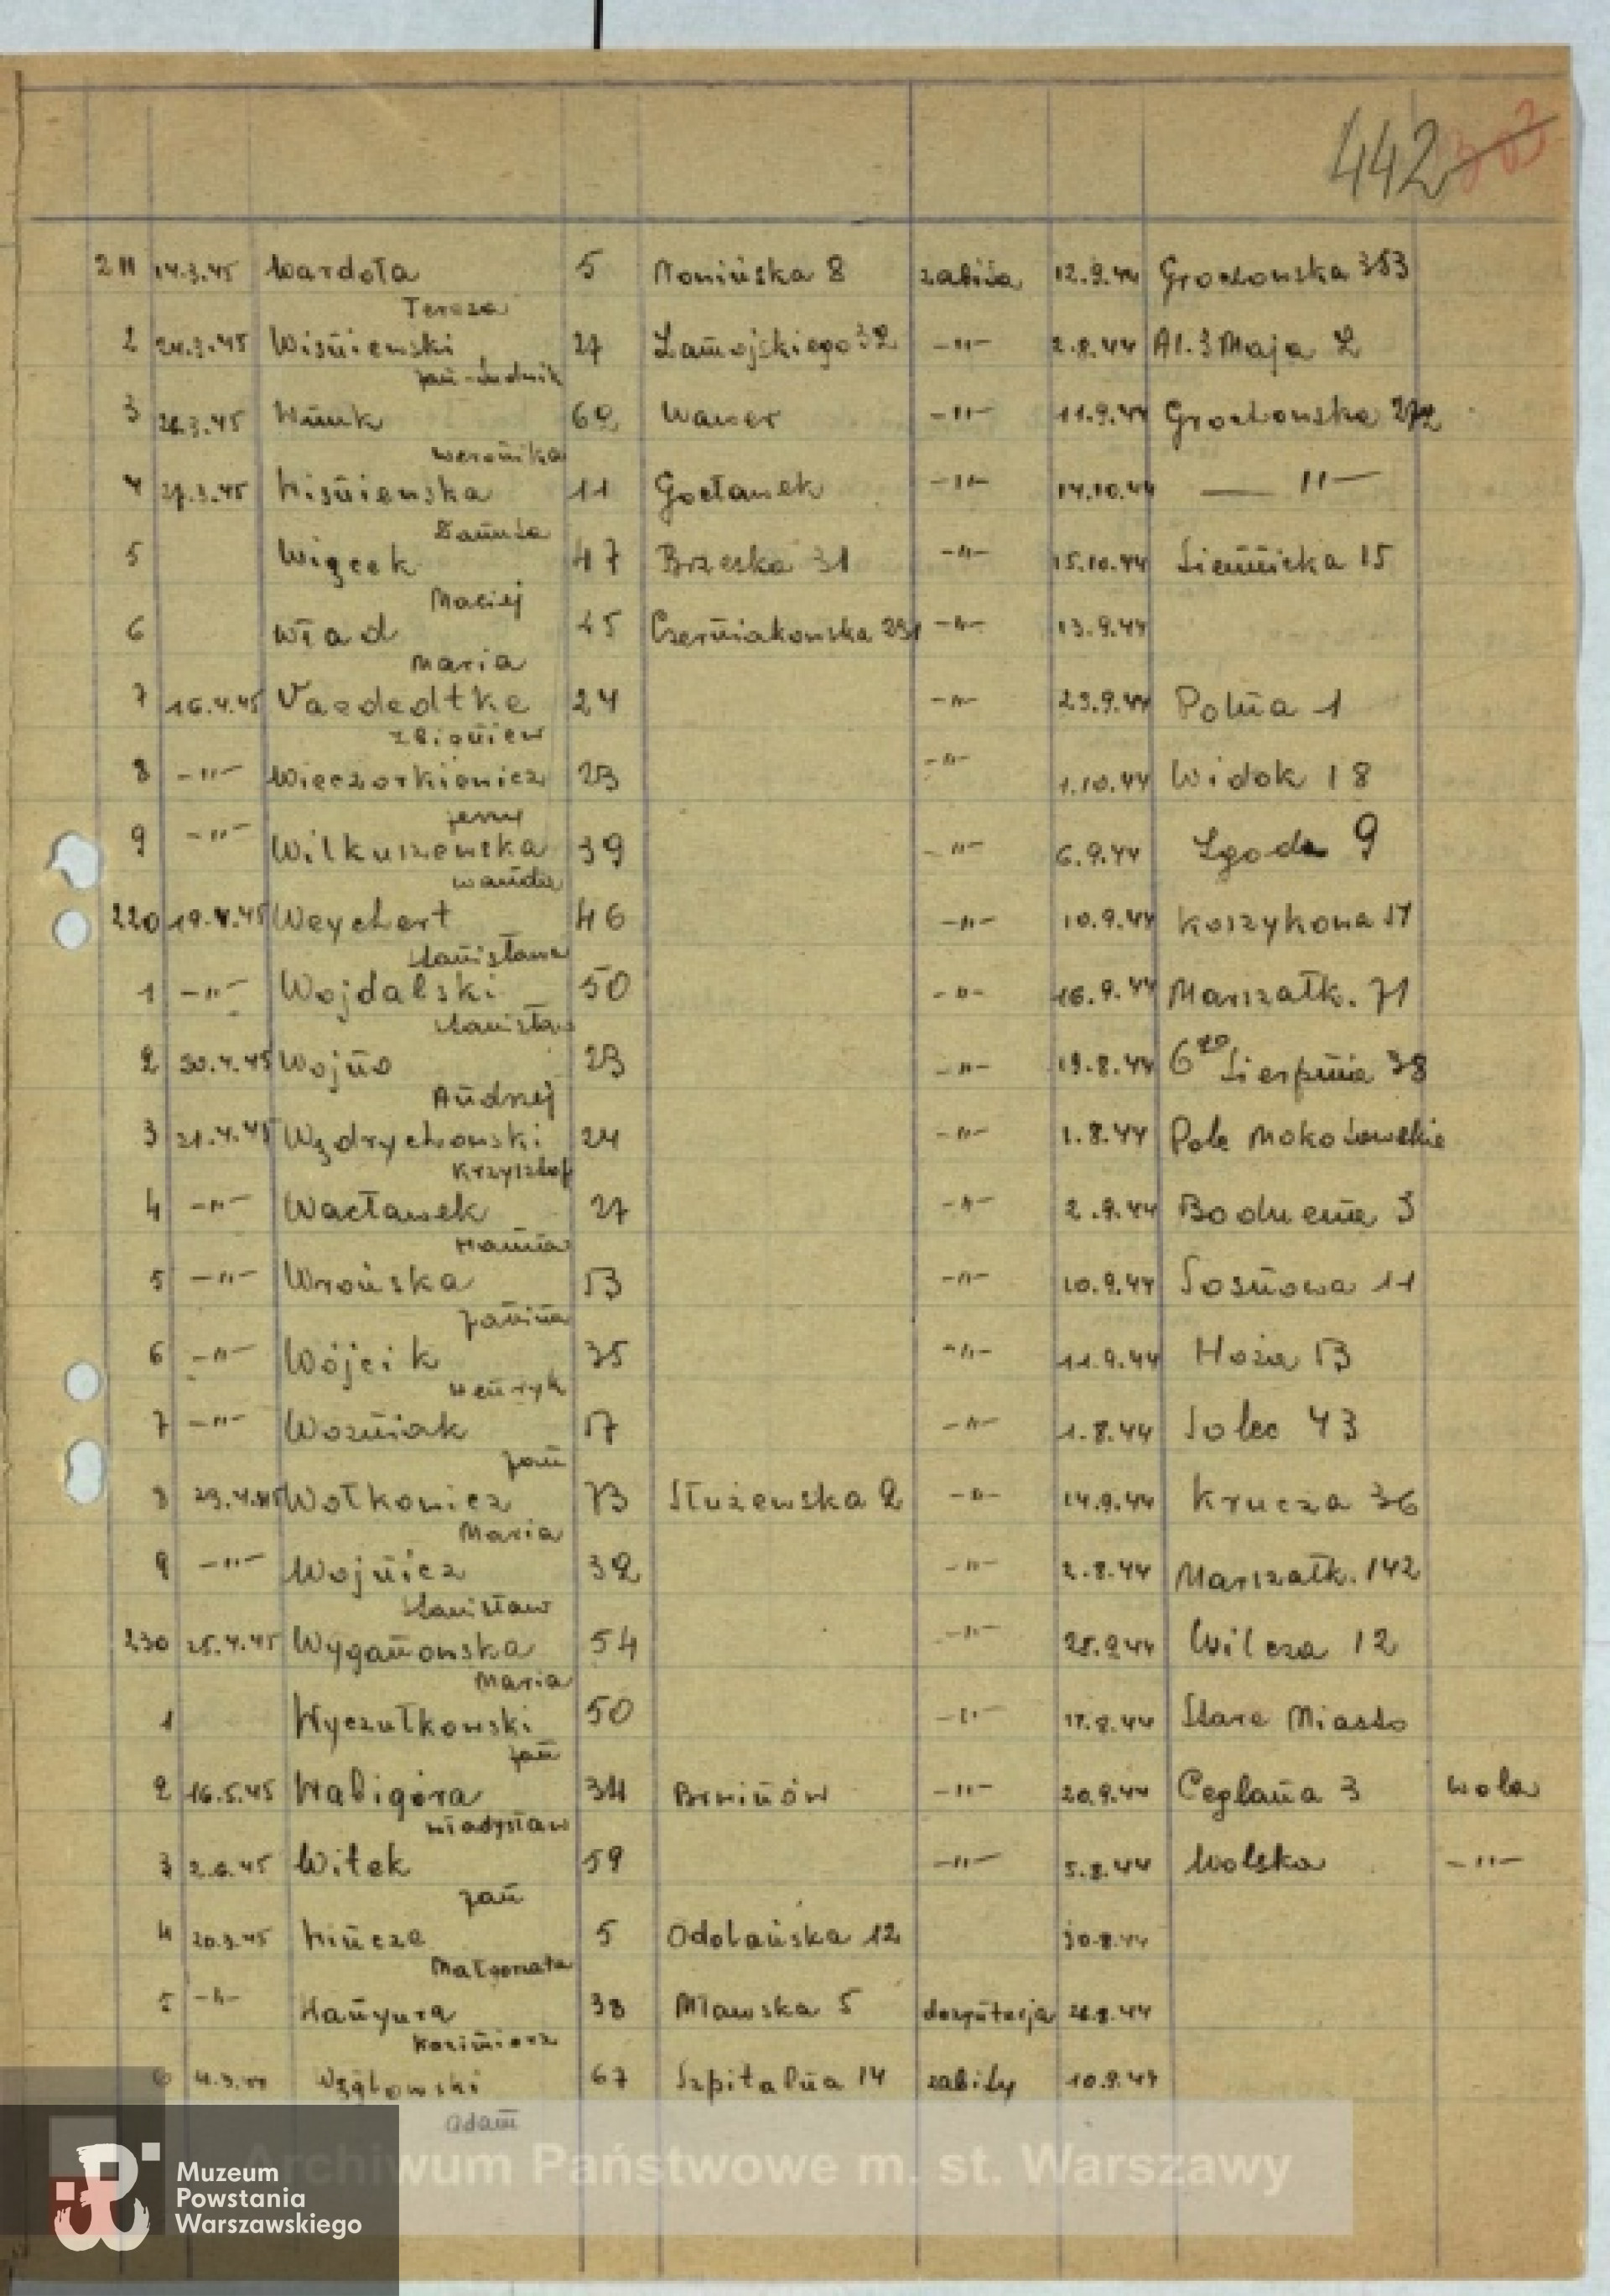 442 303
211 14.3.45 Wardoła 5 Monińska 8 zabita 12.9.44 Grochowska 353
Teresa
2 24.3.45 Wiśniewski 27 Zamojskiego 32 -"- 2.8.44 Al. 3 Maja 2
Jan-Ludwik
3 26.3.45 Wnuk 62 Wawer -"- 11.9.44 Grochowska 272
Weronika
4 27.3.45 Wiśniewska 11 Gocławek -"- 14.10.44 -"-
Danuta
5 Więcek 47 Brzeska 31 -"- 15.10.44 Siennicka 15
Maciej
6 Wład 45 Czerniakowska 231 -"- 13.9.44
Maria
7 16.4.45 Vaededtke 24 -"- 23.9.44 Polna 1
Zbigniew
8 -"- Wieczorkiewicz 23 -"- 1.10.44 Widok 18
Jerzy
9 -"- Wilkuszewska 39 -"- 6.9.44 Zgoda 9
Wanda
220 19.4.45 Weychert 46 -"- 10.9.44 Koszykowa 57
Stanisława
1 -"- Wojdalski 50 -"- 16.9.44 Marszałk. 71
Stanisław
2 20.4.45 Wojno 23 -"- 19.8.44 6go Sierpnia 38
Andrzej
3 21.4.45 Wędrychowski 24 -"- 1.8.44 Pole Mokotowskie
Krzysztof
4 -"- Wacławek 27 -"- 2.9.44 Boduena 3
Hanna
5 -"- Wrońska 53 -"- 10.9.44 Sosnowa 11
Janina
6 -"- Wójcik 35 -"- 11.9.44 Hoża 53
Henryk
7 -"- Woźniak 57 -"- 1.8.44 Solec 43
Jan
8 23.4.45 Wołkowicz 73 Służewska 2 -"- 14.9.44 Krucza 36
Maria
9 -"- Wojnicz 32 -"- 2.8.44 Marszałk. 142
Stanisław
230 25.4.45 Wyganowska 54 -"- 25.9.44 Wilcza 12
Maria
1 Wyczułkowski 50 -"- 17.8.44 Stare Miasto
Jan
2 16.5.45 Wabigóra 34 Brwinów -"- 20.9.44 Ceglana 3 Wola
Władysław
3 2.6.45 Witek 59 -"- 5.8.44 Wolska -"-
Jan
4 20.3.45 Wincza 5 Odolańska 12 30.8.44
Małgorzata
5 -"- Wańyura 38 Mławska 5 dezynteria 26.8.44
Kazimierz
6 67 Szpitalna 14 zabity 10.9.44
Adam
Archiwum Państwowe m. st. Warszawy
Muzeum
Powstania
Warszawskiego